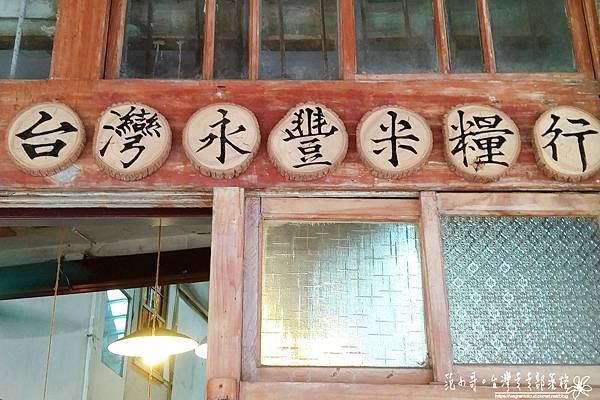 台灣永豐米糧行